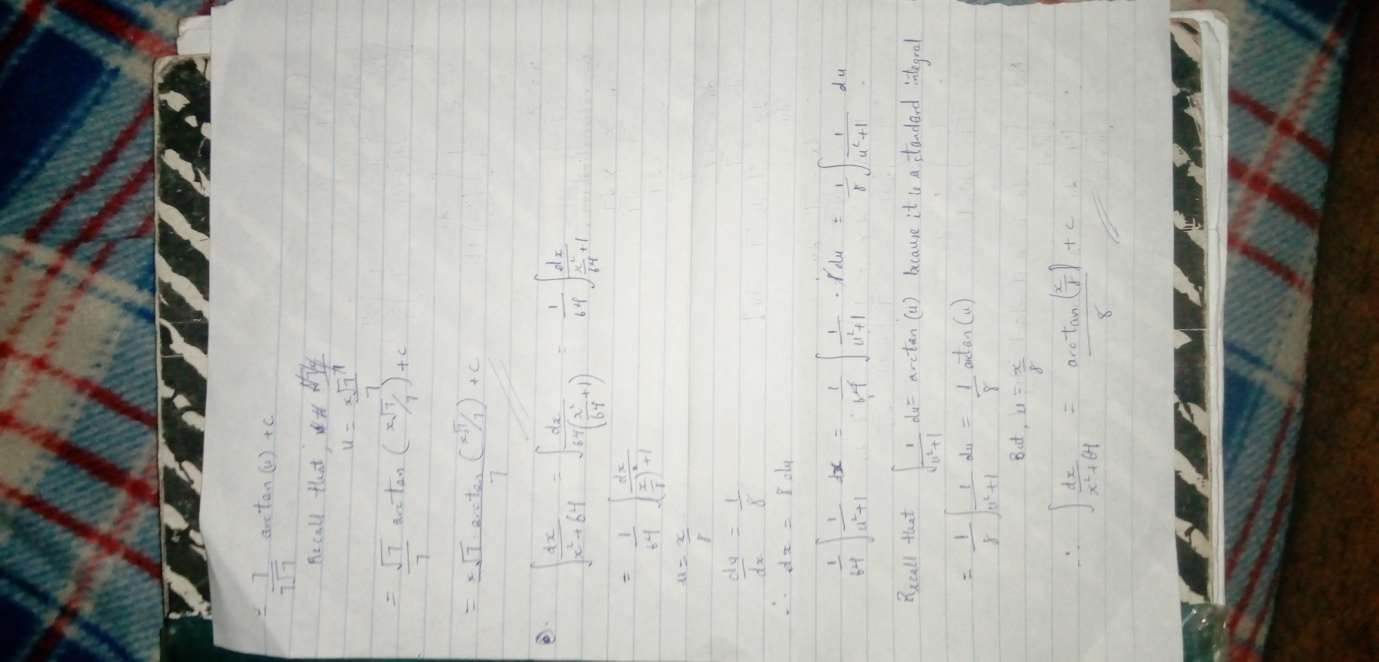 = 7/(7√7) arctan (u) + c
Recall that,
u = x√7/7
= √7/7 arctan (x√7/7) + c
= √7 . arctan (x√7/7)/7 + c
⑥. ∫ dx/(x²+64) = ∫ dx/(64(x²/64 +1)) = 1/64 ∫ dx/(x²/64 +1)
= 1/64 ∫ dx/((x/8)²+1)
u = x/8
du/dx = 1/8
∴ dx = 8 du
1/64 ∫ 1/(u²+1) dx = 1/64 ∫ 1/(u²+1) . 8 du = 1/8 ∫ 1/(u²+1) du
Recall that ∫ 1/(u²+1) du = arctan (u) because it is a standard integral
= 1/8 ∫ 1/(u²+1) du = 1/8 arctan (u)
But, u = x/8
∴ ∫ dx/(x²+64) = arctan (x/8)/8 + c